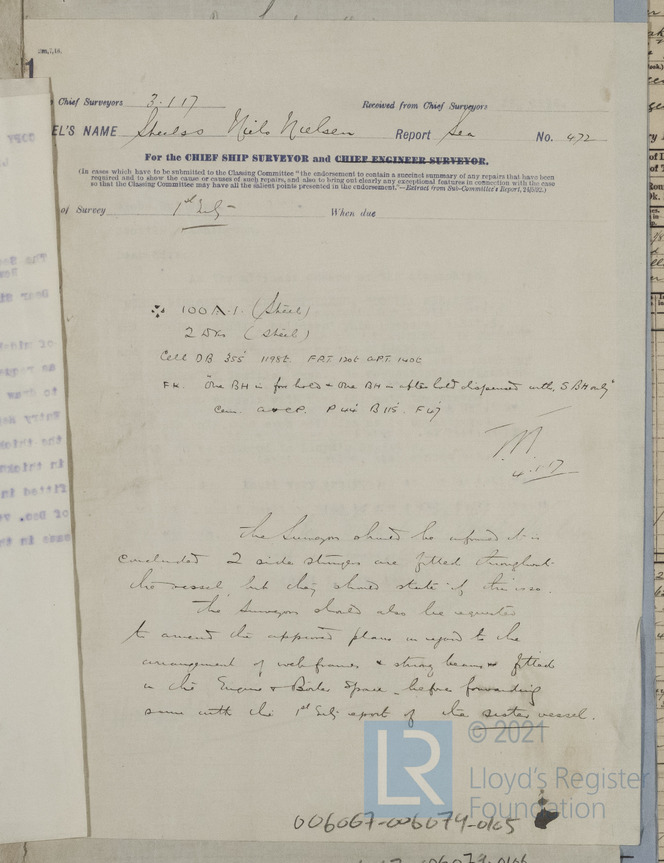 Chief Surveyors 3.1.17 Received from Chief Surveyors
EL'S NAME Niels Nielsen Report Sea No. 472
For the CHIEF SHIP SURVEYOR and CHIEF ENGINEER SURVEYOR.
(In cases which have to be submitted to the Classing Committee "the endorsement to contain a succinct summary of any repairs that have been
required and to show the cause or causes of such repairs, and also to bring out clearly any exceptional features in connection with the case
so that the Classing Committee may have all the salient points presented in the endorsement."—Extract from Sub-Committee's Report,
of Survey 1st Entry When due
100A.1. (Steel)
2 Dks (Steel)
Cell DB 355' 1198t FPT 120t APT 140t
FK. "One BH in fore hold & One BH in after hold dispensed with, 5 BH only"
Cem. P 44' B 115' F 47'
4.1.17
the Surveyors should be informed it is
concluded 2 side stringers are fitted throughout
the vessel, but they should state if this is so.
The Surveyors should also be requested
to amend the approved plans in regard to the
arrangement of web frames & strong beams fitted
in the Engine & Boiler Space before forwarding
same with the 1st Entry report of the sister vessel.
© 2021
LR
Lloyd's Register
Foundation
006067-006074-0105